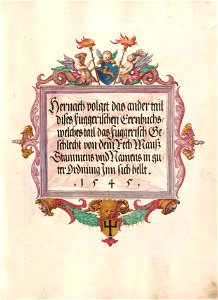 Hernach volget das ander tail
dises Fuggerischen Eernbuchs
welches tail das Fuggerisch Ge
schlecht von dem Rech Manß
Stammens vnd Namens in gu
ter Ordnung Inn sich helt.
.1.5.4.5.